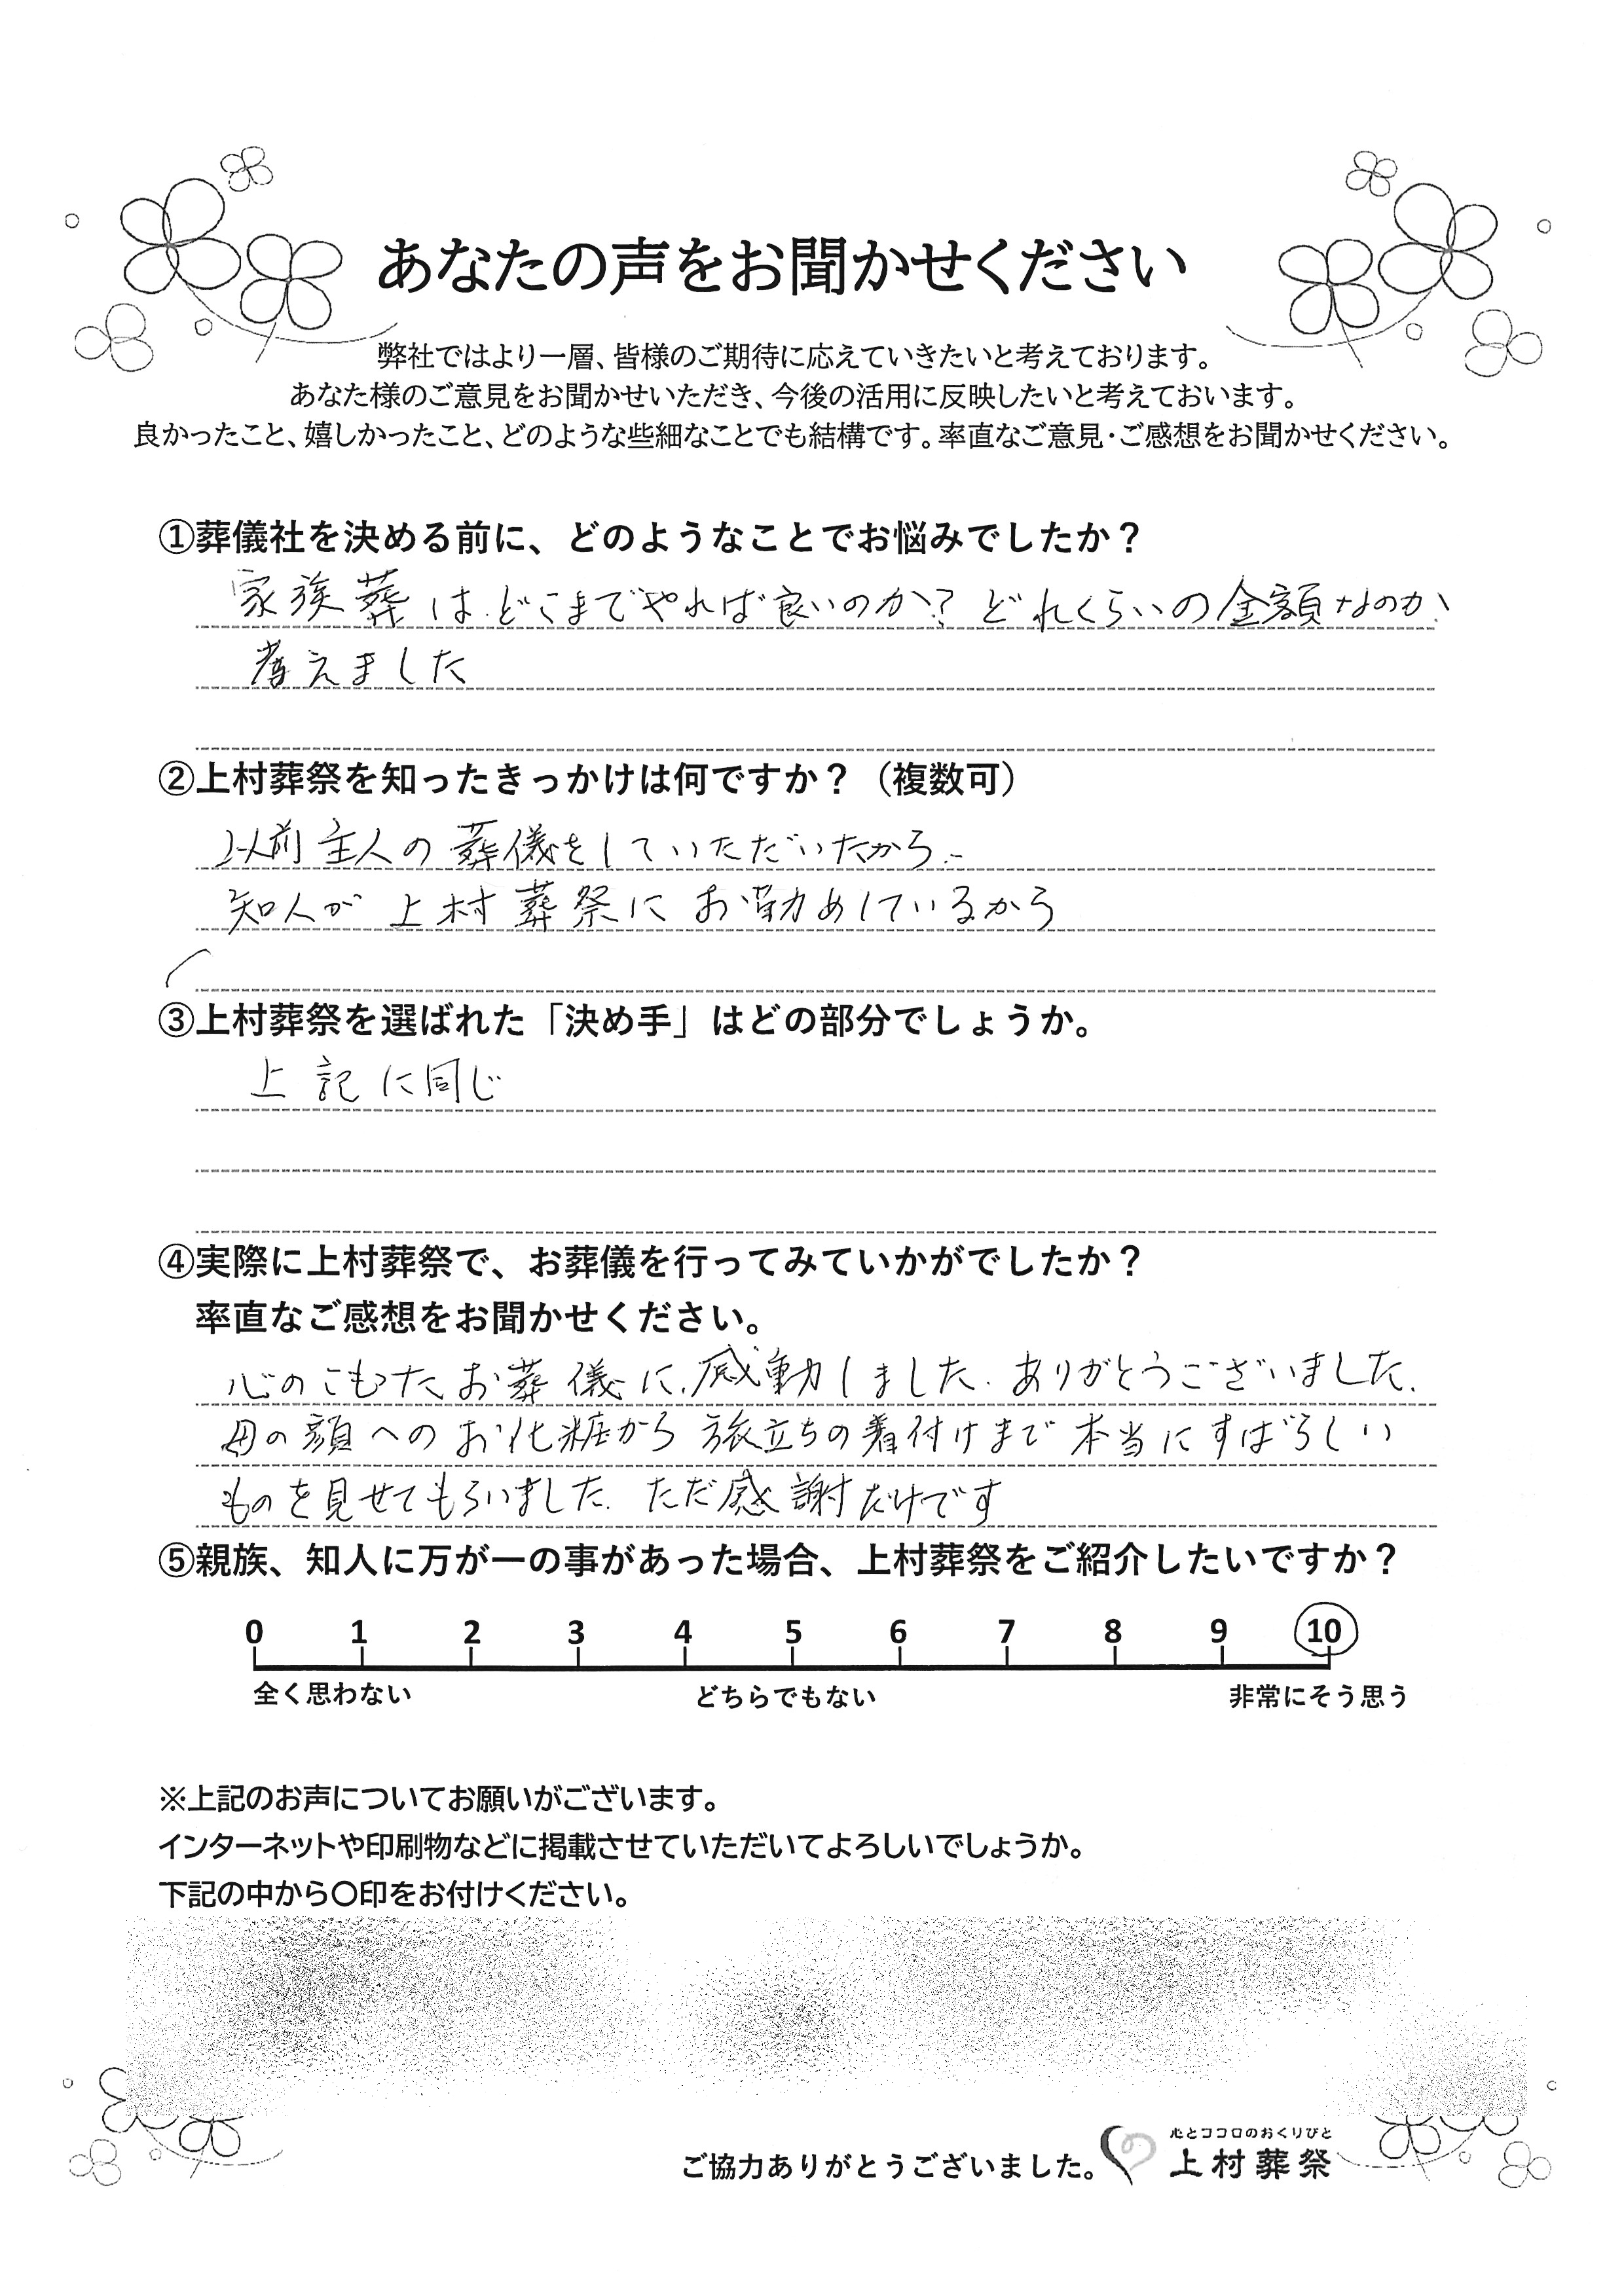 あなたの声をお聞かせください
弊社ではより一層、皆様のご期待に応えていきたいと考えております。
あなた様のご意見をお聞かせいただき、今後の活用に反映したいと考えておいます。
良かったこと、嬉しかったこと、どのような些細なことでも結構です。率直なご意見・ご感想をお聞かせください。
①葬儀社を決める前に、どのようなことでお悩みでしたか？
家族葬は.どこまでやれば良いのか？どれくらいの金額なのか、
考えました
②上村葬祭を知ったきっかけは何ですか？（複数可）
以前主人の葬儀をしていただいたから..
知人が上村葬祭にお勤めしているから
③上村葬祭を選ばれた「決め手」はどの部分でしょうか。
上記に同じ
④実際に上村葬祭で、お葬儀を行ってみていかがでしたか？
率直なご感想をお聞かせください。
心のこもたお葬儀に.感動しました.ありがとうございました.
母の顔へのお化粧から旅立ちの着付けまで本当にすばらしい
ものを見せてもらいました.ただ感謝だけです
⑤親族、知人に万が一の事があった場合、上村葬祭をご紹介したいですか？
0 1 2 3 4 5 6 7 8 9 10
全く思わない どちらでもない 非常にそう思う
※上記のお声についてお願いがございます。
インターネットや印刷物などに掲載させていただいてよろしいでしょうか。
下記の中から〇印をお付けください。
心とココロのおくりびと
ご協力ありがとうございました。 上村葬祭